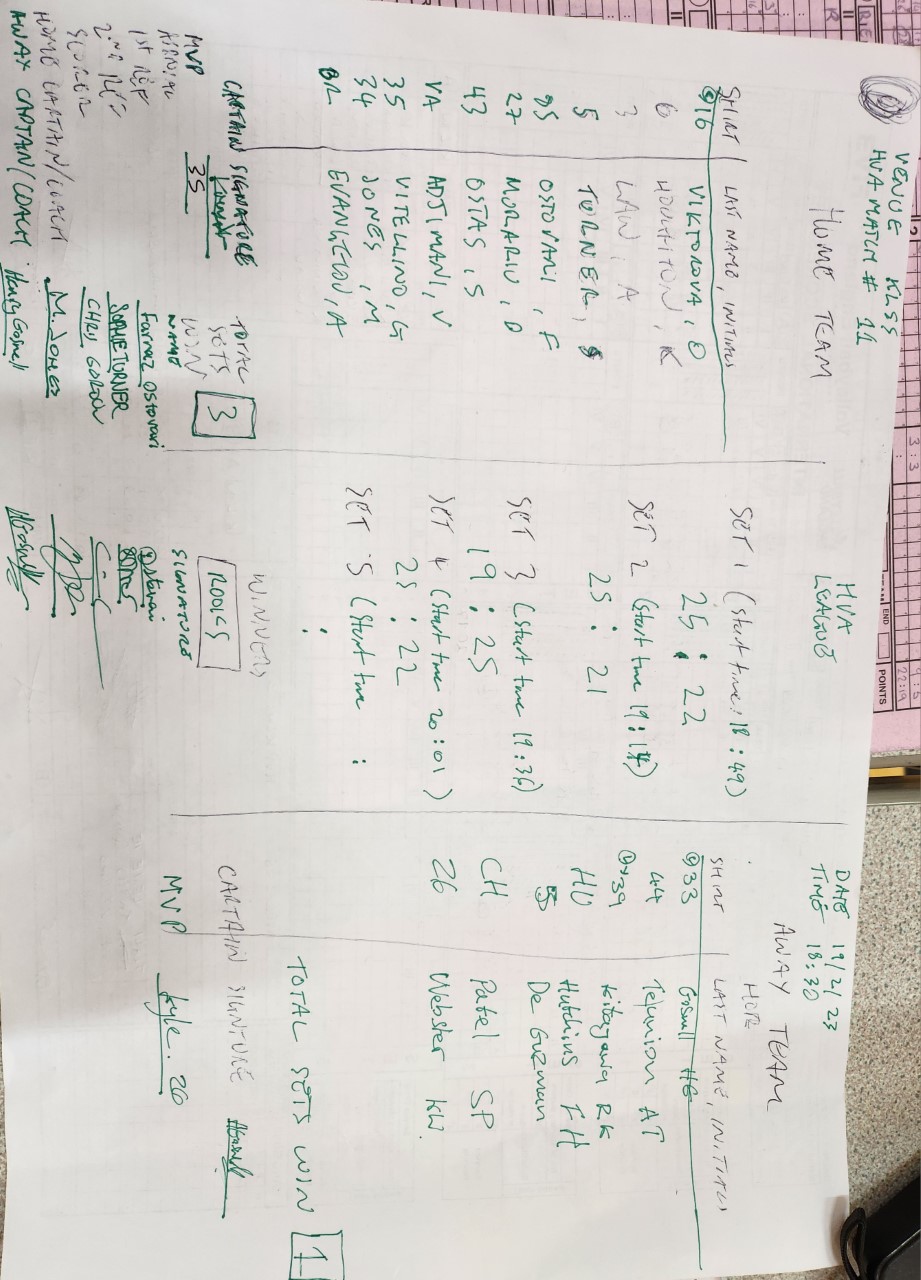 VENUE KLSS
HVA MATCH # 11
HVA
LEAGUE
DATE 19/2/23
TIME 18:30
HOME TEAM
SHIRT LAST NAME, INITIALS
16 VIKTOROVA, O
6 HOUGHTON, K
3 LAW, A
5 TURNER, S
95 OSTOVARI, F
27 MORARIU, D
43 OSTAS, S
VA ADJIMANI, V
35 VITELLINO, G
34 JONES, M
BR EVANGELOU, A
CAPTAIN SIGNATURE
MVP 35
TOTAL
SETS
WIN 3
SET 1 (start time: 18:49)
25 : 22
SET 2 (start time 19:14)
25 : 21
SET 3 (start time 19:36)
19 : 25
SET 4 (start time 20:01)
25 : 22
SET 5 (start time :
:
WINNERS
ROOKS
AWAY TEAM
HOPE
SHIRT LAST NAME, INITIALS
33 Gosnell HG
44 Tejunion AT
39 Kitagawa RK
HU Hutchins FH
5 De Guzman
CH Patel SP
26 Webster KW.
TOTAL SETS WIN 1
CAPTAIN SIGNTURE
MVP Kyle. 26
NAME SIGNATURE
1ST REF Farnaz Ostovari
2ND REF SOPHIE TURNER
SCORER CHRIS
HOME CAPTAIN/COACH M. JONES
AWAY CAPTAIN/COACH. Henry Gosnell
END
POINTS
22:19
3 : 3